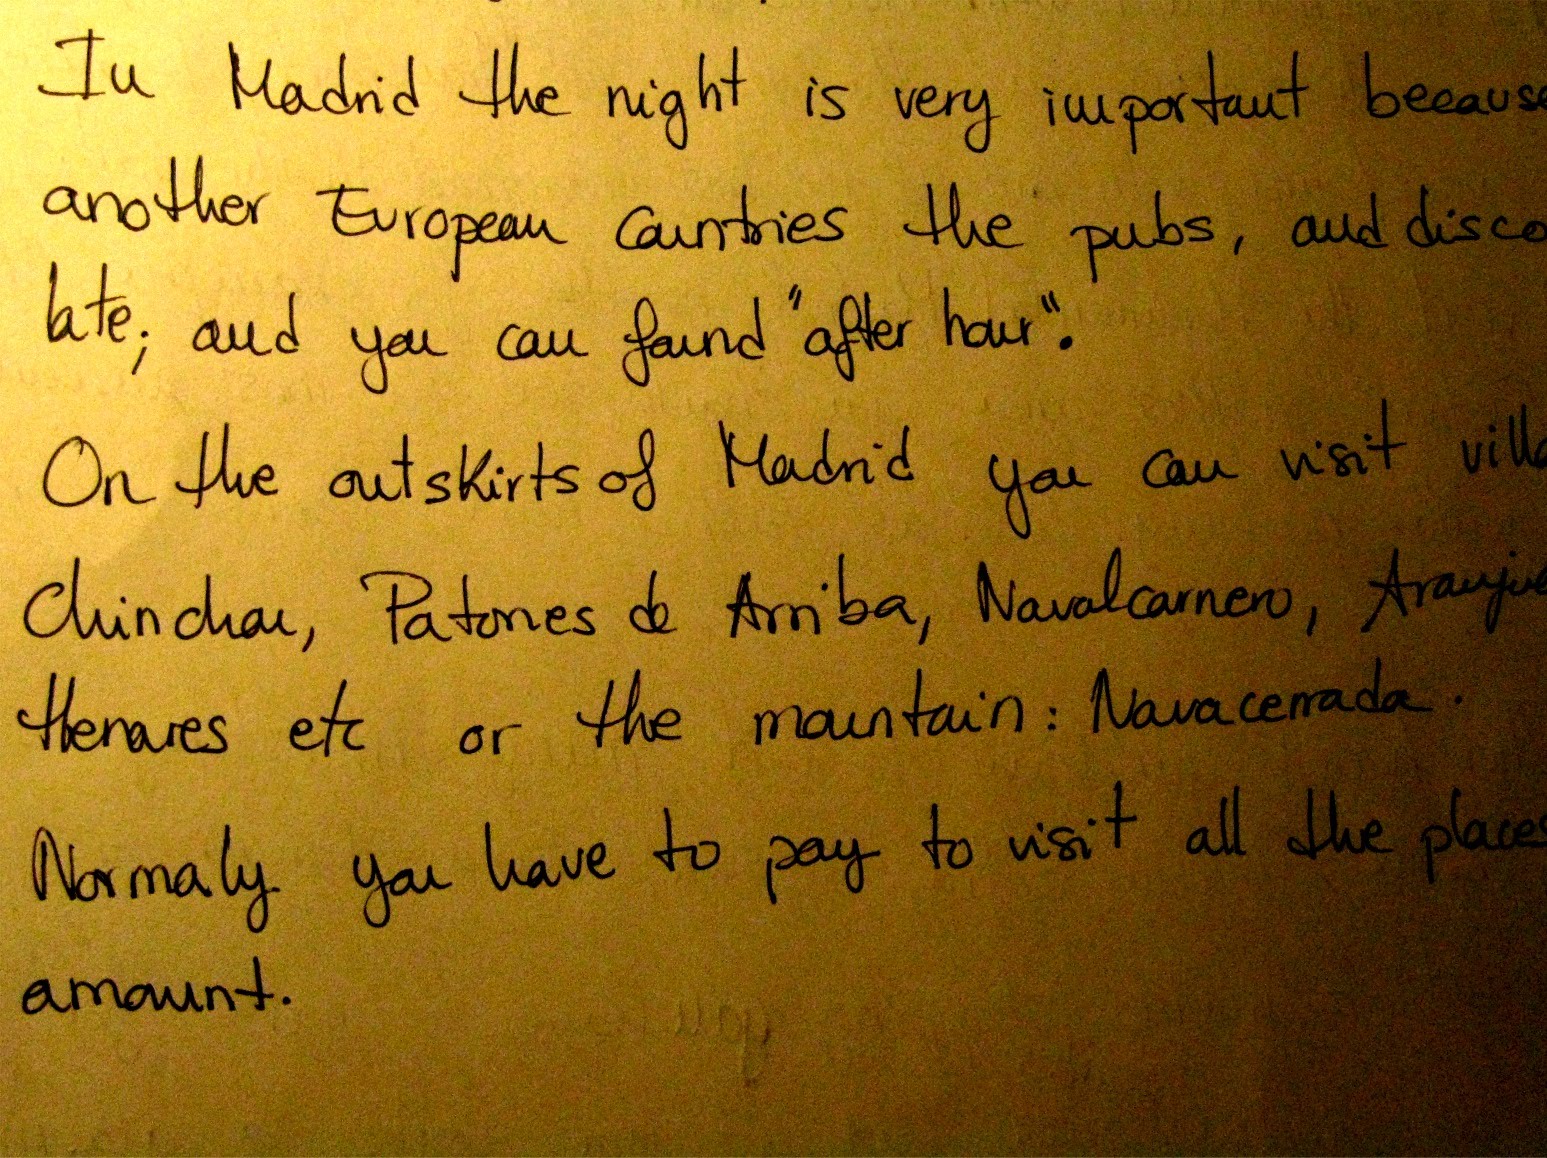 In Madrid the night is very important because
another European countries the pubs, and disco
late; and you can found "after hour".
On the outskirts of Madrid you can visit villa
Chinchon, Patones de Arriba, Navalcarnero, Aranjue
Henares etc or the mountain: Navacerrada.
Normaly you have to pay to visit all the places
amount.